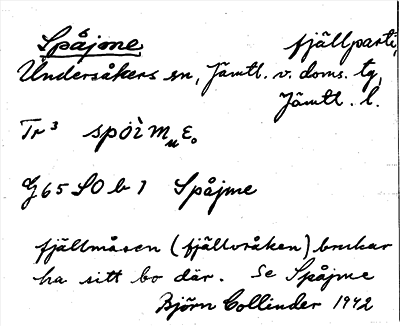 Spåjme, fjällparti,
Undersåkers sn, Jämtl. v. doms. tg,
Jämtl. l.
Tr³
G 65 SO b 1 Spåjme
fjällmåsen (fjällvråken) brukar
ha sitt bo där. Se Spåjme
Björn Collinder 1942